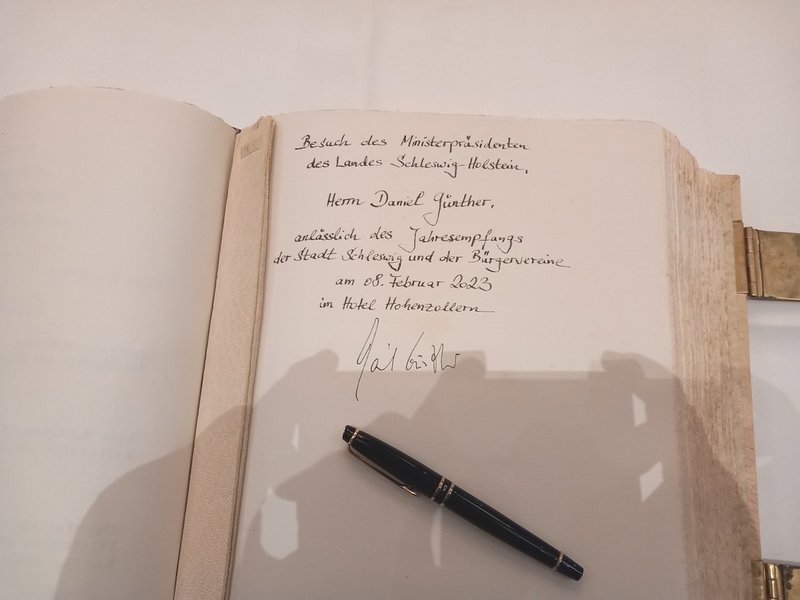 Besuch des Ministerpräsidenten
des Landes Schleswig-Holstein,
Herrn Daniel Günther,
anlässlich des Jahresempfangs
der Stadt Schleswig und der Bürgervereine
am 08. Februar 2023
im Hotel Hohenzollern